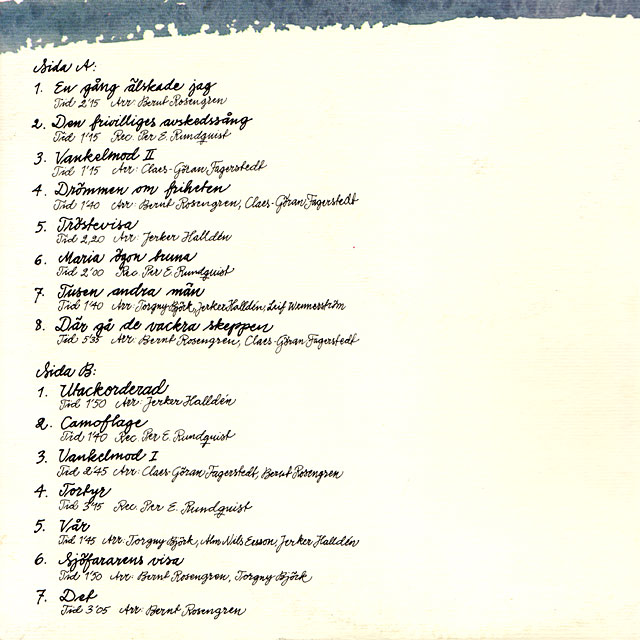 Sida A:
1. En gång älskade jag
Tid 2'15 Arr: Bernt Rosengren
2. Den frivilliges avskedssång
Tid 1'15 Rec. Per E. Rundquist
3. Vankelmod II
Tid 1'15 Arr: Claes-Göran Fagerstedt
4. Drömmen om friheten
Tid 1'40 Arr: Bernt Rosengren, Claes-Göran Fagerstedt
5. Tröstevisa
Tid 2,20 Arr: Jerker Halldén
6. Maria ögon bruna
Tid 2'00 Rec Per E. Rundquist
7. Tusen andra män
Tid 1'40 Arr: Torgny Björk, Jerker Halldén, Leif Wennerström
8. Där gå de vackra skeppen
Tid 5'35 Arr: Bernt Rosengren, Claes-Göran Fagerstedt
Sida B:
1. Utackorderad
Tid 1'50 Arr: Jerker Halldén
2. Camoflage
Tid 1'40 Rec. Per E. Rundquist
3. Vankelmod I
Tid 2'45 Arr: Claes-Göran Fagerstedt, Bernt Rosengren
4. Tortyr
Tid 3'15 Rec. Per E. Rundquist
5. Vår
Tid 1'45 Arr: Torgny Björk, Nils Ersson, Jerker Halldén
6. Sjöfararens visa
Tid 1'50 Arr: Bernt Rosengren, Torgny Björk
7. Det
Tid 3'05 Arr: Bernt Rosengren